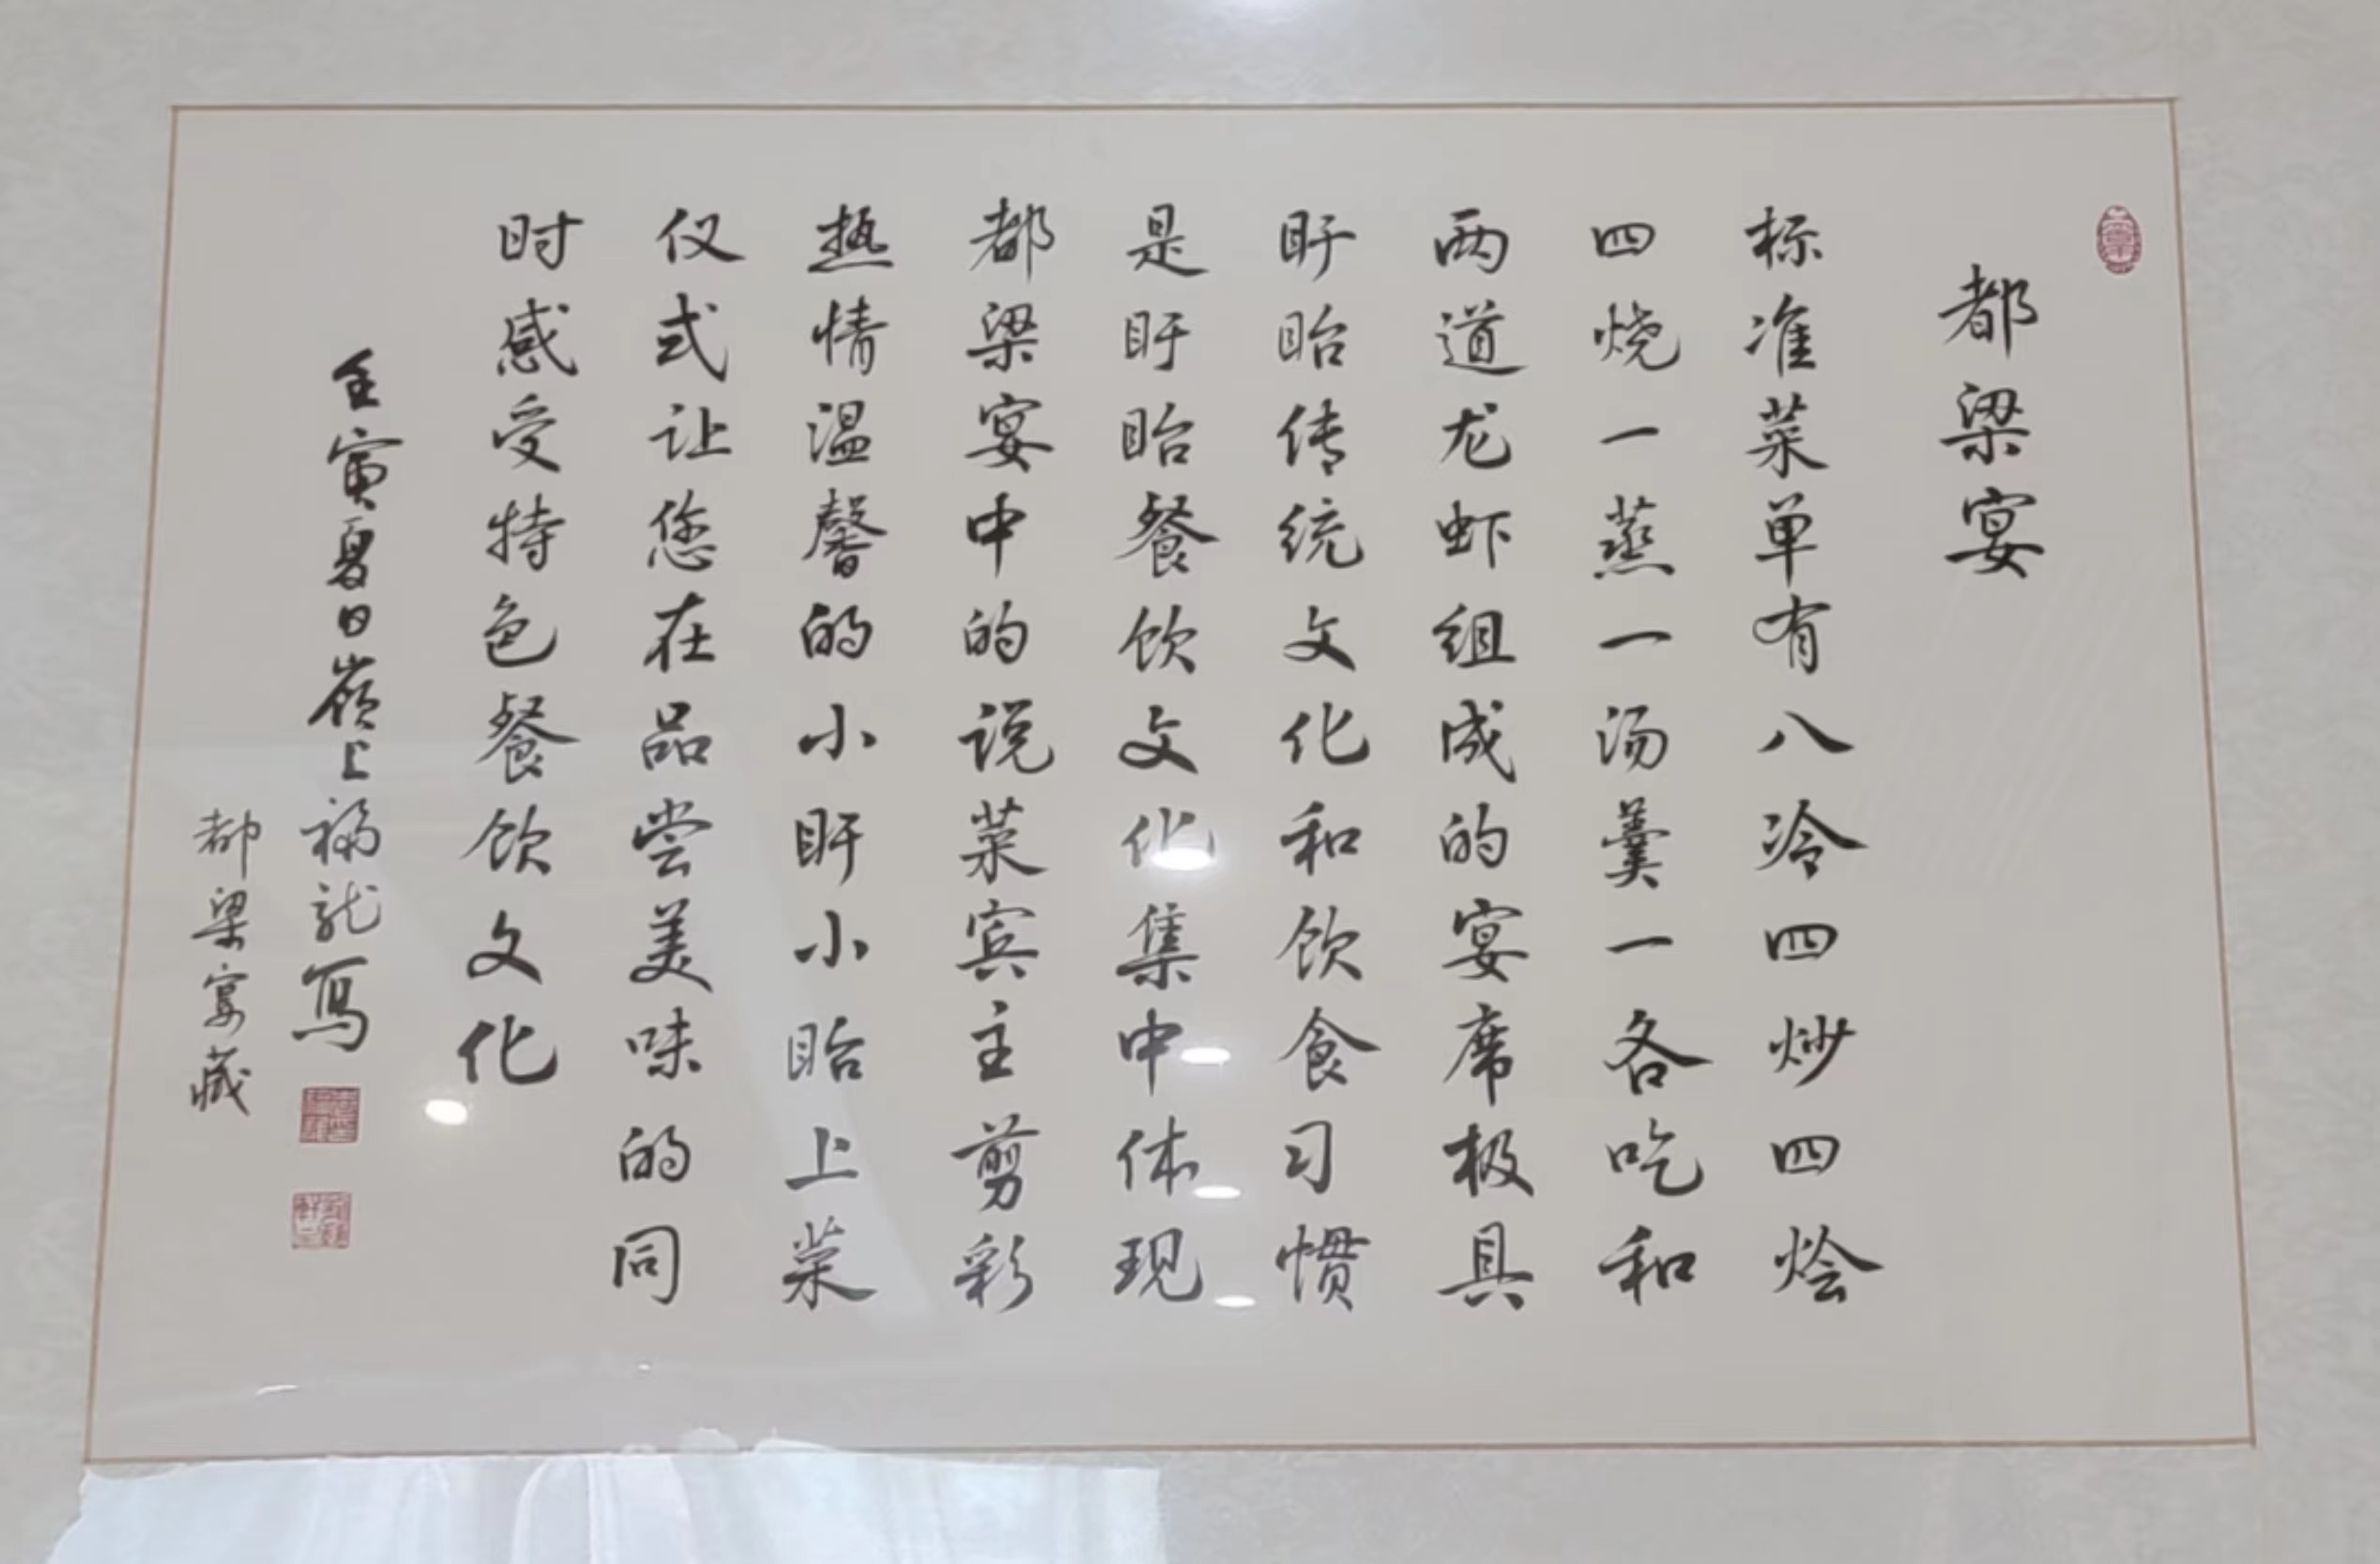 都梁宴
标准菜单有八冷四炒四烩
四烧一蒸一汤羹一各吃和
两道龙虾组成的宴席极具
盱眙传统文化和饮食习惯
是盱眙餐饮文化集中体现
都梁宴中的说菜宾主剪彩
热情温馨的小盱小眙上菜
仪式让您在品尝美味的同
时感受特色餐饮文化
壬寅夏日嶺上福龙写
都梁宴藏